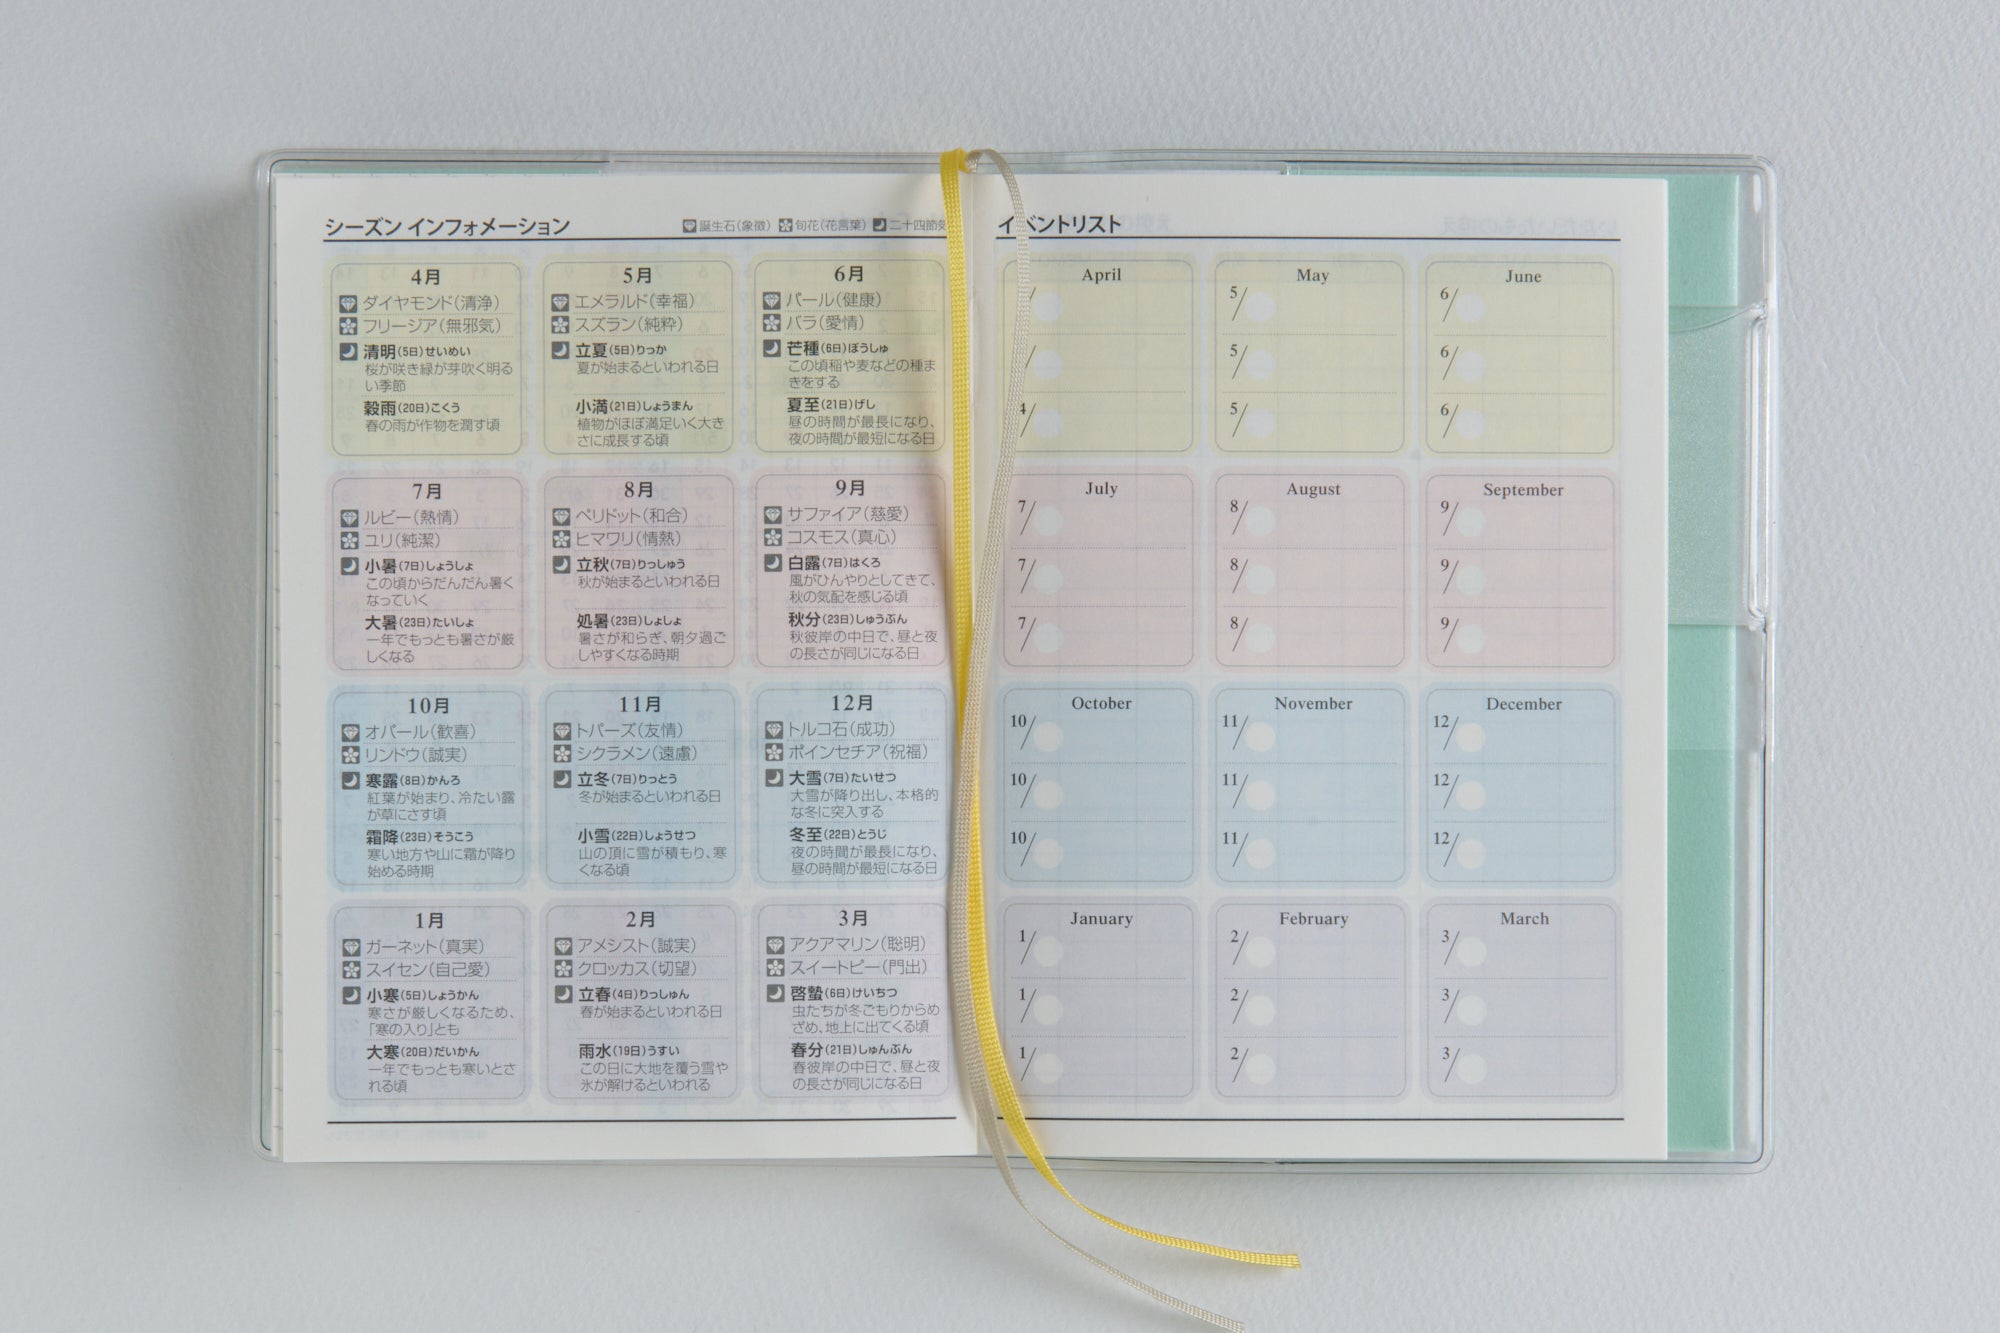 シーズン インフォメーション
誕生石(象徴) 旬花(花言葉) 二十四節気
4月
ダイヤモンド(清浄)
フリージア(無邪気)
清明(5日)せいめい
桜が咲き緑が芽吹く明る
い季節
穀雨(20日)こくう
春の雨が作物を潤す頃
5月
エメラルド(幸福)
スズラン(純粋)
立夏(5日)りっか
夏が始まるといわれる日
小満(21日)しょうまん
植物がほぼ満足いく大き
さに成長する頃
6月
パール(健康)
バラ(愛情)
芒種(6日)ぼうしゅ
この頃稲や麦などの種ま
きをする
夏至(21日)げし
昼の時間が最長になり、
夜の時間が最短になる日
7月
ルビー(熱情)
ユリ(純潔)
小暑(7日)しょうしょ
この頃からだんだん暑く
なっていく
大暑(23日)たいしょ
一年でもっとも暑さが厳
しくなる
8月
ペリドット(和合)
ヒマワリ(情熱)
立秋(7日)りっしゅう
秋が始まるといわれる日
処暑(23日)しょしょ
暑さが和らぎ、朝夕過ご
しやすくなる時期
9月
サファイア(慈愛)
コスモス(真心)
白露(7日)はくろ
風がひんやりとしてきて、
秋の気配を感じる頃
秋分(23日)しゅうぶん
秋彼岸の中日で、昼と夜
の長さが同じになる日
10月
オパール(歓喜)
リンドウ(誠実)
寒露(8日)かんろ
紅葉が始まり、冷たい露
が草にさす頃
霜降(23日)そうこう
寒い地方や山に霜が降り
始める時期
11月
トパーズ(友情)
シクラメン(遠慮)
立冬(7日)りっとう
冬が始まるといわれる日
小雪(22日)しょうせつ
山の頂に雪が積もり、寒
くなる頃
12月
トルコ石(成功)
ポインセチア(祝福)
大雪(7日)たいせつ
大雪が降り出し、本格的
な冬に突入する
冬至(22日)とうじ
夜の時間が最長になり、
昼の時間が最短になる日
1月
ガーネット(真実)
スイセン(自己愛)
小寒(5日)しょうかん
寒さが厳しくなるため、
「寒の入り」とも
大寒(20日)だいかん
一年でもっとも寒いとさ
れる頃
2月
アメシスト(誠実)
クロッカス(切望)
立春(4日)りっしゅん
春が始まるといわれる日
雨水(19日)うすい
この日に大地を覆う雪や
氷が解けるといわれる
3月
アクアマリン(聡明)
スイートピー(門出)
啓蟄(6日)けいちつ
虫たちが冬ごもりからめ
ざめ、地上に出てくる頃
春分(21日)しゅんぶん
春彼岸の中日で、昼と夜
の長さが同じになる日
イベントリスト
April
/
/
4/
May
5/
5/
5/
June
6/
6/
6/
July
7/
7/
7/
August
8/
8/
8/
September
9/
9/
9/
October
10/
10/
10/
November
11/
11/
11/
December
12/
12/
12/
January
1/
1/
1/
February
2/
2/
2/
March
3/
3/
3/